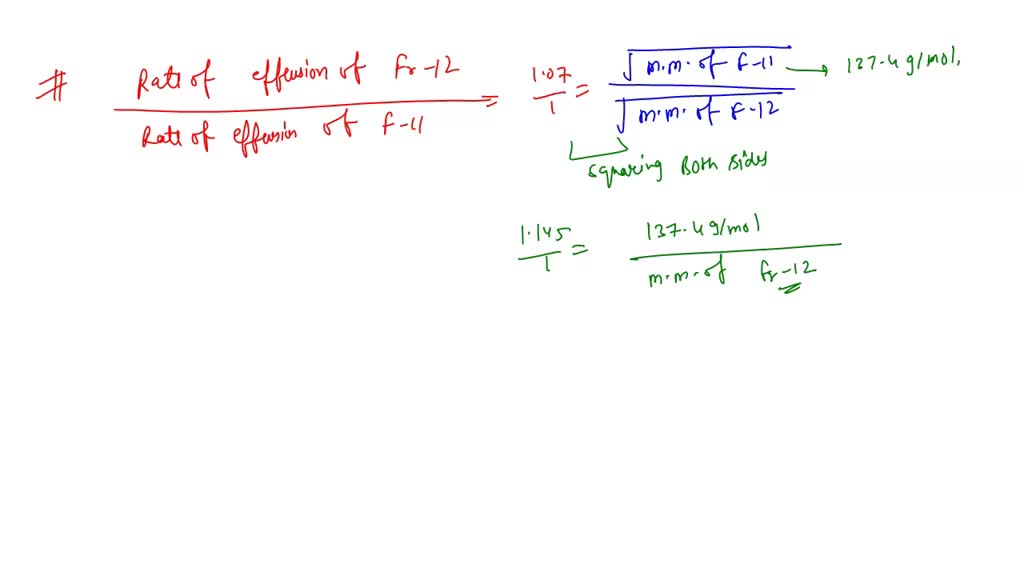 # Rate of effusion of Fr-12 / Rate of effusion of F-11 = 1.07 / 1 = √m.m. of F-11 / √m.m. of F-12 → 137.4 g/mol.
squaring Both sides
1.145 / 1 = 137.4 g/mol / m.m. of Fr-12